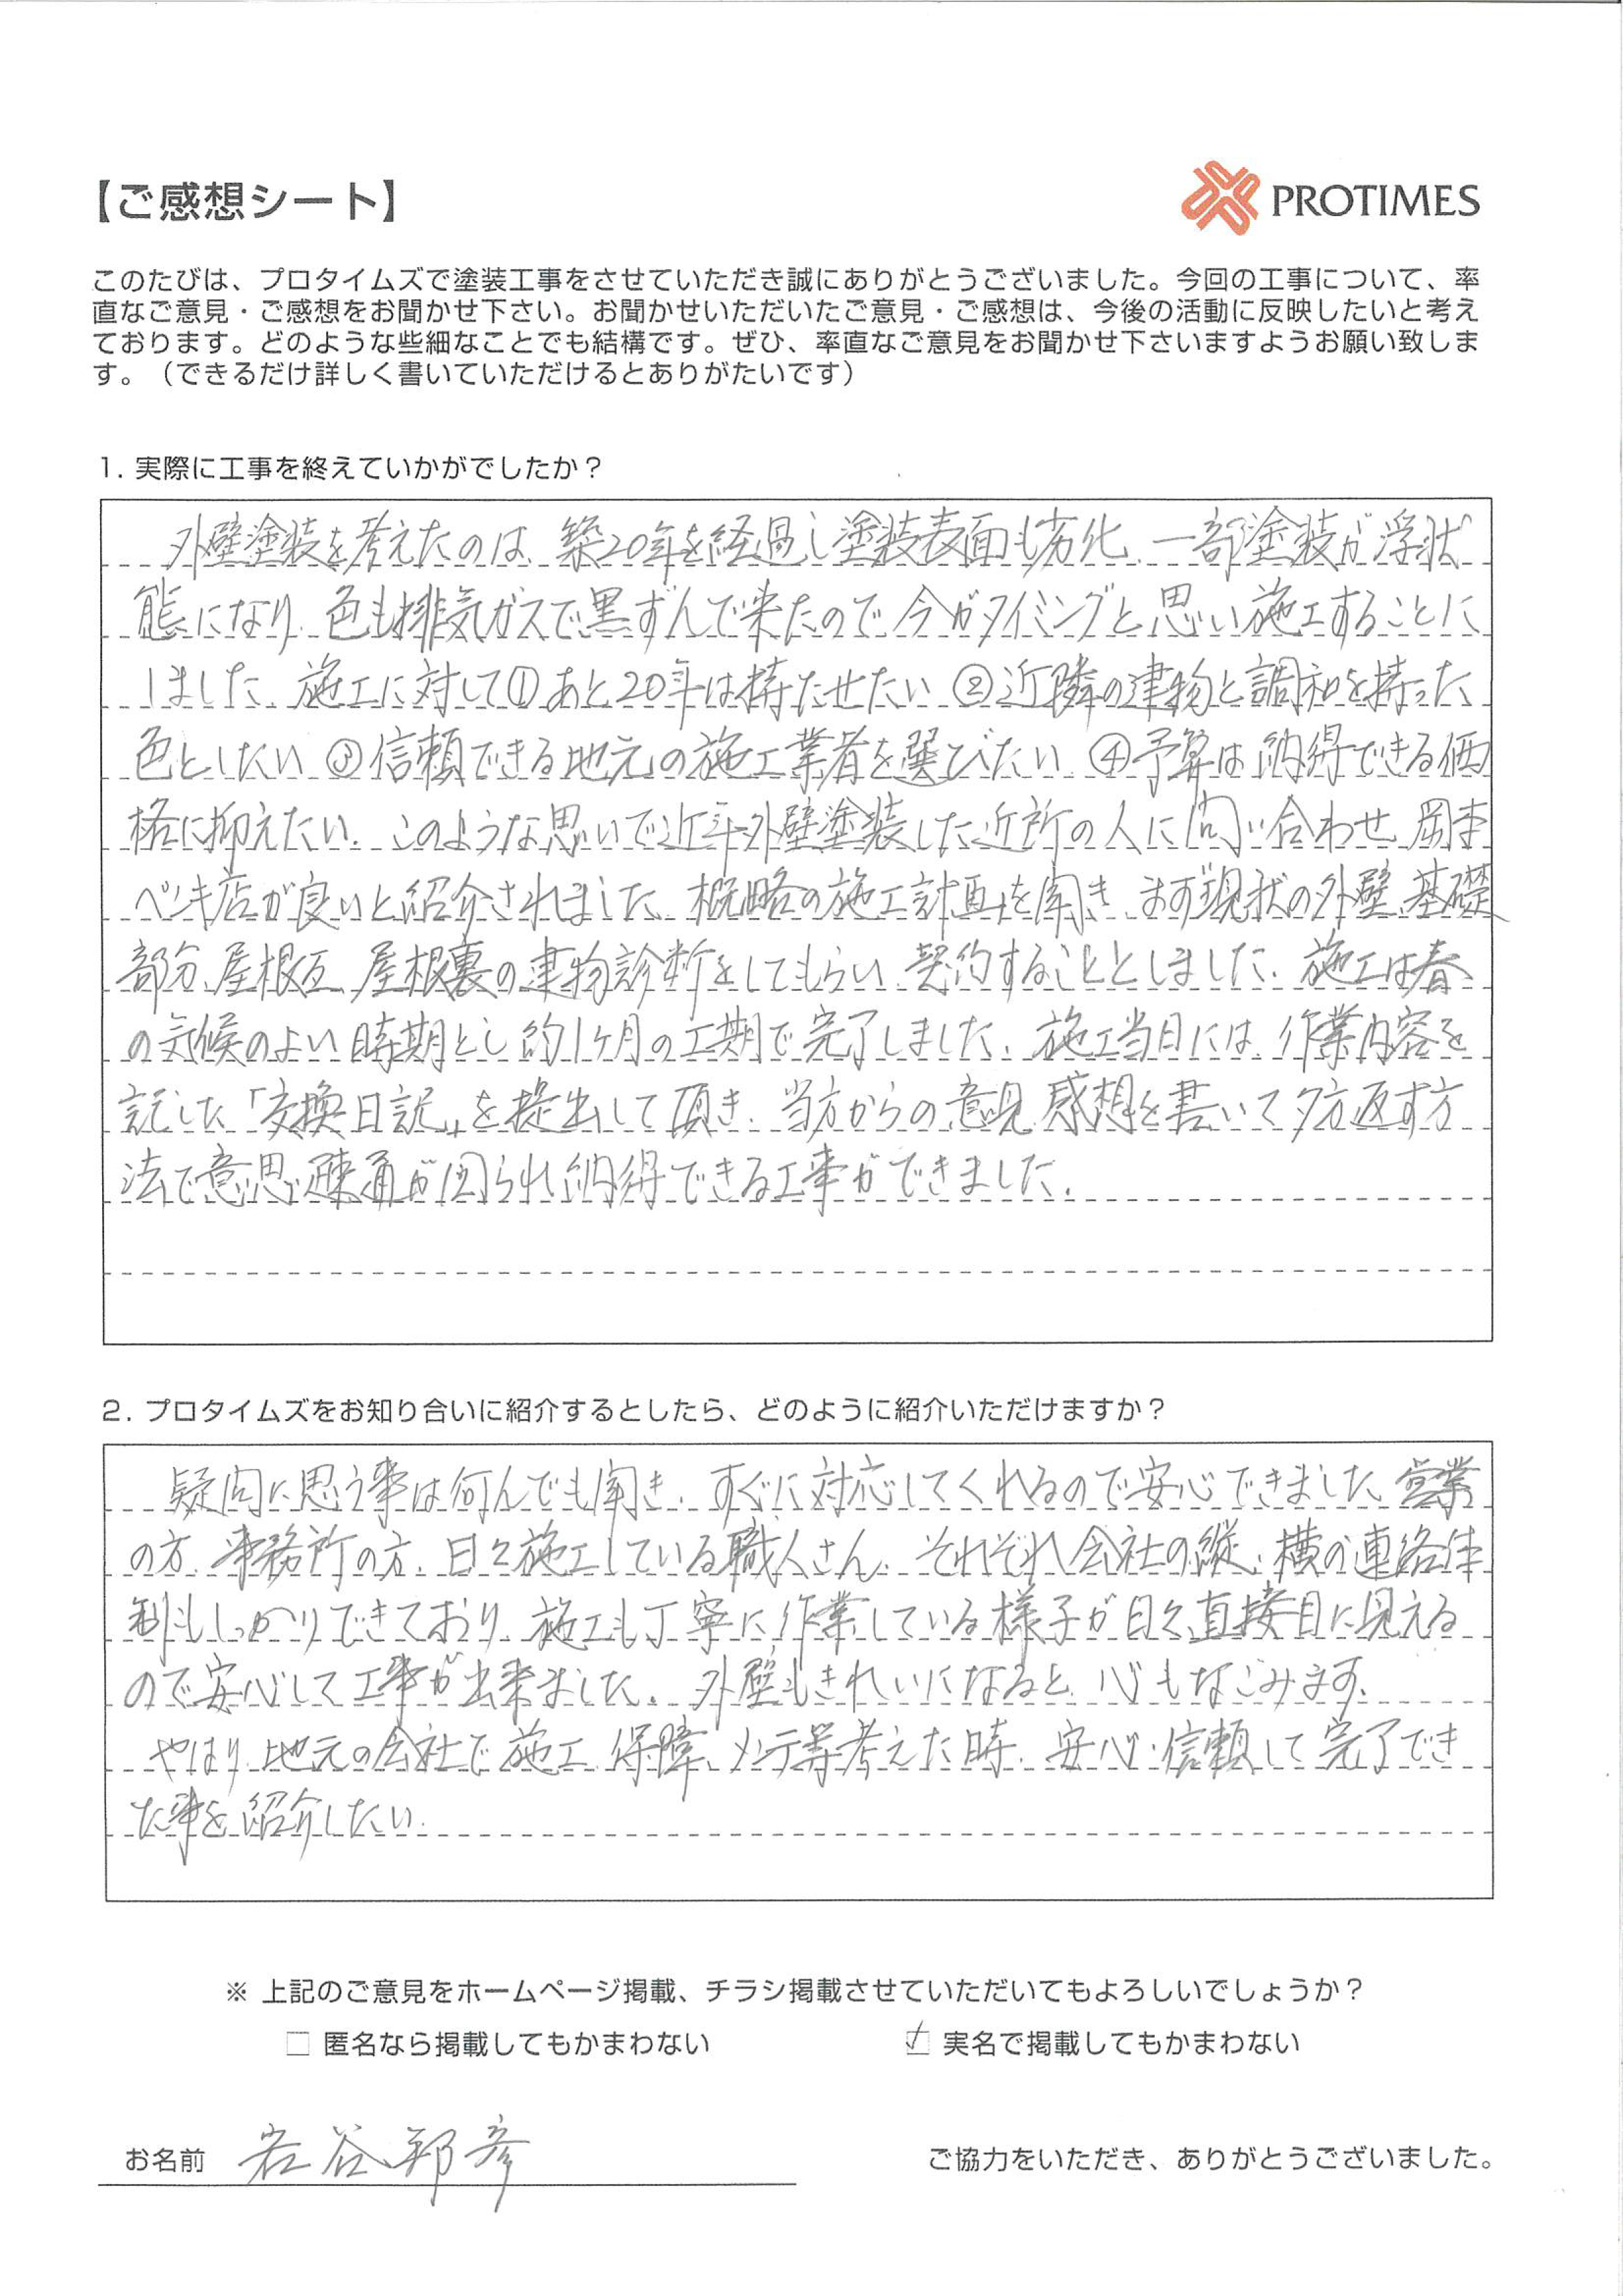 【ご感想シート】
PROTIMES
このたびは、プロタイムズで塗装工事をさせていただき誠にありがとうございました。今回の工事について、率
直なご意見・ご感想をお聞かせ下さい。お聞かせいただいたご意見・ご感想は、今後の活動に反映したいと考え
ております。どのような些細なことでも結構です。ぜひ、率直なご意見をお聞かせ下さいますようお願い致しま
す。（できるだけ詳しく書いていただけるとありがたいです）
1. 実際に工事を終えていかがでしたか？
外壁塗装を考えたのは、築20年を経過し塗装表面も劣化、一部塗装が浮状
態になり、色も排気ガスで黒ずんで来たので今がタイミングと思い施工することに
しました。施工に対して①あと20年は持たせたい ②近隣の建物と調和を持った
色としたい ③信頼できる地元の施工業者を選びたい ④予算は納得できる価
格に抑えたい。このような思いで近年外壁塗装した近所の人に問い合わせ、岡本
ペンキ店が良いと紹介されました。概略の施工計画を聞き、まず現状の外壁、基礎
部分、屋根瓦、屋根裏の建物診断をしてもらい、契約することとしました。施工は春
の気候のよい時期とし約1ヶ月の工期で完了しました。施工当日には、作業内容を
記した「交換日記」を提出して頂き、当方からの意見、感想を書いて夕方返す方
法で意思疎通が図られ納得できる工事ができました。
2. プロタイムズをお知り合いに紹介するとしたら、どのように紹介いただけますか？
疑問に思う事は何んでも聞き、すぐに対応してくれるので安心できました。営業
の方、事務所の方、日々施工している職人さん、それぞれ会社の縦、横の連絡体
制もしっかりできており、施工も丁寧に作業している様子が日々直接目に見える
ので安心して工事が出来ました。外壁もきれいになると、心もなごみます。
やはり、地元の会社で施工、保障、メンテ等考えた時、安心・信頼して完了でき
た事を紹介したい。
※ 上記のご意見をホームページ掲載、チラシ掲載させていただいてもよろしいでしょうか？
□ 匿名なら掲載してもかまわない ☑ 実名で掲載してもかまわない
お名前 岩谷邦彦 ご協力をいただき、ありがとうございました。